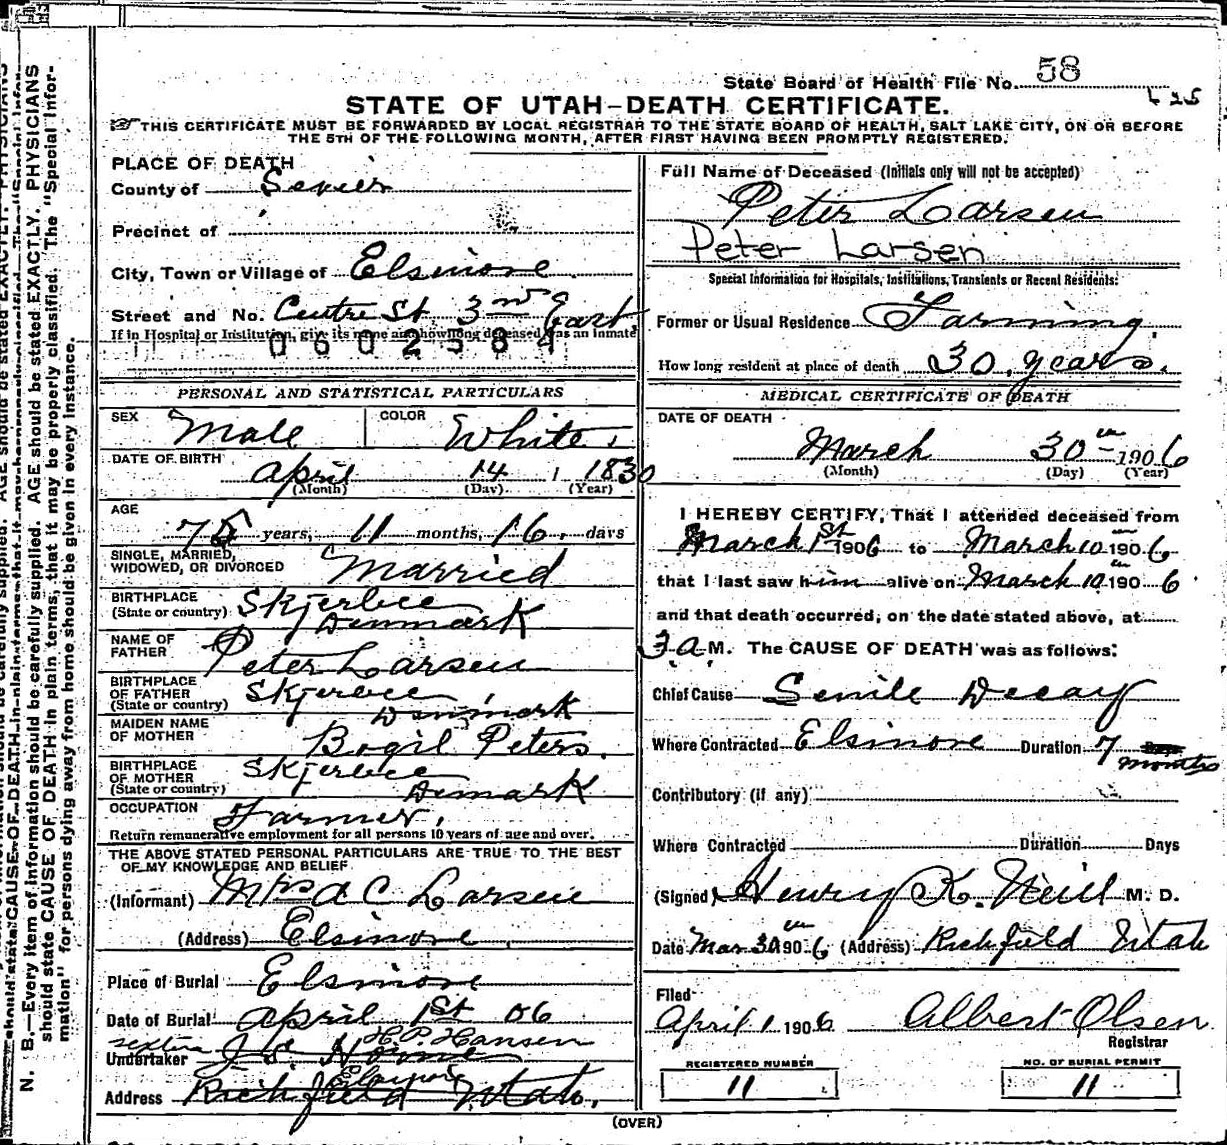 State Board of Health File No. 58
STATE OF UTAH—DEATH CERTIFICATE.
THIS CERTIFICATE MUST BE FORWARDED BY LOCAL REGISTRAR TO THE STATE BOARD OF HEALTH, SALT LAKE CITY, ON OR BEFORE
THE 5TH OF THE FOLLOWING MONTH, AFTER FIRST HAVING BEEN PROMPTLY REGISTERED.
PLACE OF DEATH
County of Sevier
Precinct of
City, Town or Village of Elsinore
Street and No. Centre St 3rd East
If in Hospital or Institution, give its name and how long deceased was an inmate
0602584
PERSONAL AND STATISTICAL PARTICULARS
SEX Male COLOR White
DATE OF BIRTH
April 14 1830
(Month) (Day) (Year)
AGE
75 years, 11 months, 16 days
SINGLE, MARRIED,
WIDOWED, OR DIVORCED Married
BIRTHPLACE
(State or country) Skjerbee
Denmark
NAME OF
FATHER Peter Larsen
BIRTHPLACE
OF FATHER
(State or country) Skjerbee
Denmark
MAIDEN NAME
OF MOTHER Bogil Peters.
BIRTHPLACE
OF MOTHER
(State or country) Skjerbee
Denmark
OCCUPATION Farmer.
Return remunerative employment for all persons 10 years of age and over.
THE ABOVE STATED PERSONAL PARTICULARS ARE TRUE TO THE BEST
OF MY KNOWLEDGE AND BELIEF
(Informant) Mrs A C Larsen
(Address) Elsinore
Place of Burial Elsinore
Date of Burial April 1st 06
sexton H.P. Hansen
Undertaker J. S. Horne
Elsinore
Address Richfield Utah.
Full Name of Deceased (Initials only will not be accepted)
Peter Larsen
Peter Larsen
Special Information for Hospitals, Institutions, Transients or Recent Residents:
Former or Usual Residence Farming.
How long resident at place of death 30 years.
MEDICAL CERTIFICATE OF DEATH
DATE OF DEATH
March 30th 1906
(Month) (Day) (Year)
I HEREBY CERTIFY, That I attended deceased from
March 1st 1906 to March 10th 1906
that I last saw him alive on March 10th 1906
and that death occurred, on the date stated above, at
3 A.M. The CAUSE OF DEATH was as follows:
Chief Cause Senile Decay
Where Contracted Elsinore Duration 7
months
Contributory (if any)
Where Contracted Duration Days
(Signed) Henry K. Neill M. D.
Date Mar 30th 1906 (Address) Richfield Utah
Filed
April 1 1906 Albert Olsen
Registrar
REGISTERED NUMBER
11
NO. OF BURIAL PERMIT
11
(OVER)
N. B.—Every item of information should be carefully supplied. AGE should be stated EXACTLY. PHYSICIANS
should state CAUSE OF DEATH in plain terms, that it may be properly classified. The "Special Infor-
mation" for persons dying away from home should be given in every instance.